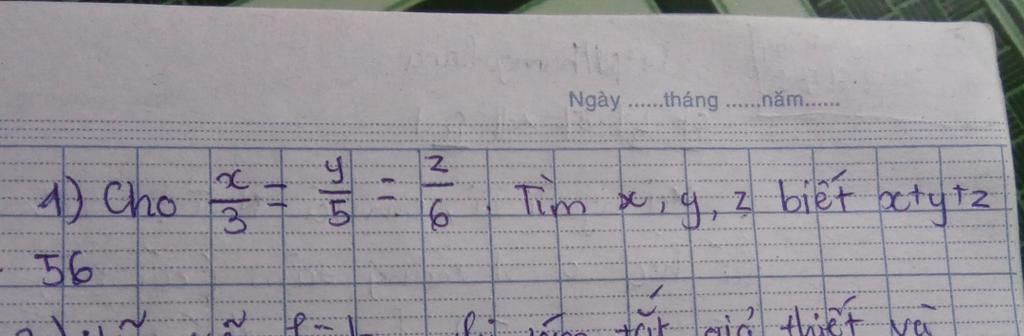 Ngày ......tháng ......năm......
1) Cho x/3 = y/5 = z/6. Tìm x, y, z biết x+y+z
56
tắt giả thiết và